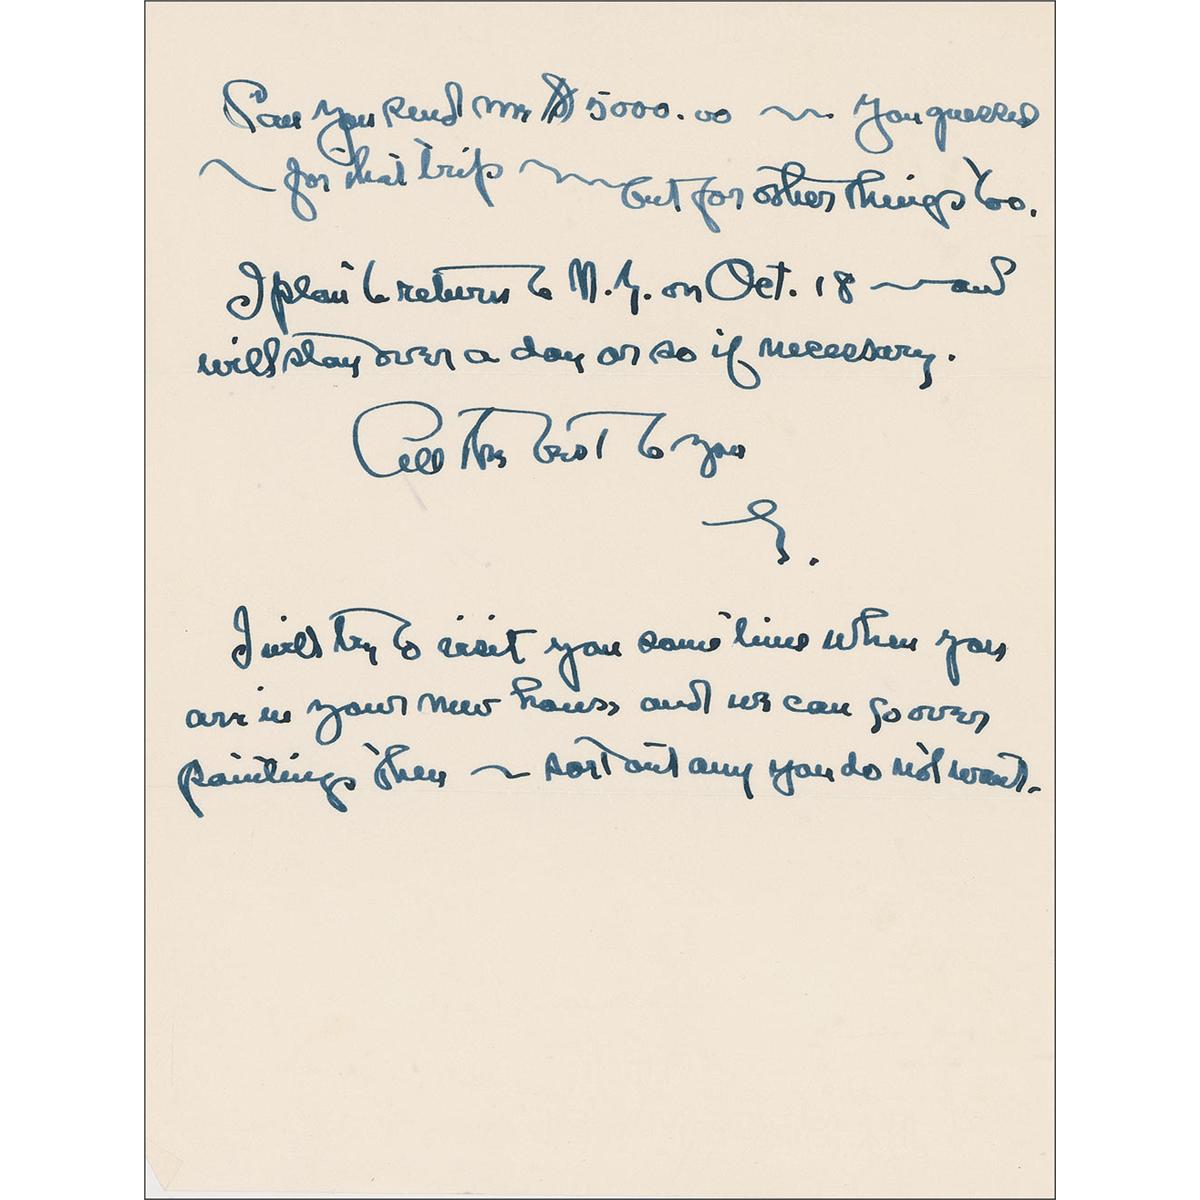 Can you send me $5000.00 ~ You guessed
~ for that trip ~ but for other things too.
I plan to return to N.Y. on Oct. 18 ~ and
will stay over a day or so if necessary.
All the best to you
G.
I will try to visit you some time when you
are in your new house and we can go over
paintings then ~ sort out any you do not want.